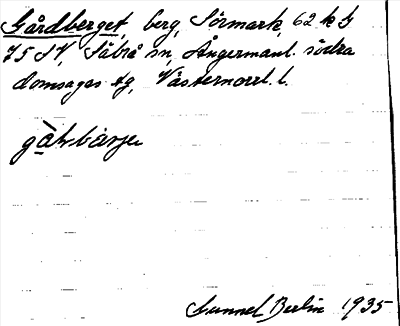 Gårdberget, berg, Sörmark, 62 k b
75 SV, Säbrå sn, Ångermanl. södra
domsagas tg, Västernorrl. l.
gàrbärje
Gunnel Berlin 1935